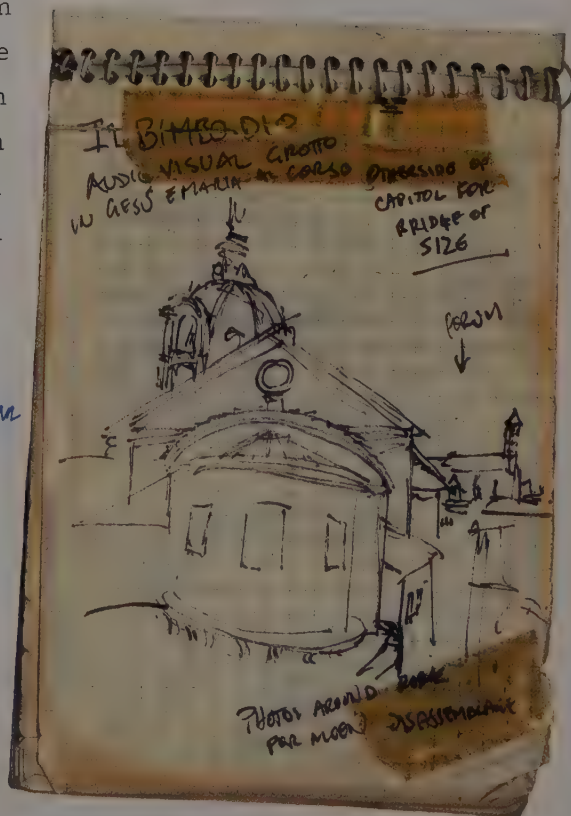 IL BIMBO DIO
AUDIO VISUAL GROTTO
IN GESÙ E MARIA AL CORSO
OTHERSIDE OF
CAPITOL FOR
BRIDGE OF
SIZE
FORUM
PHOTOS AROUND
FOR
DISASSEMBLAGE